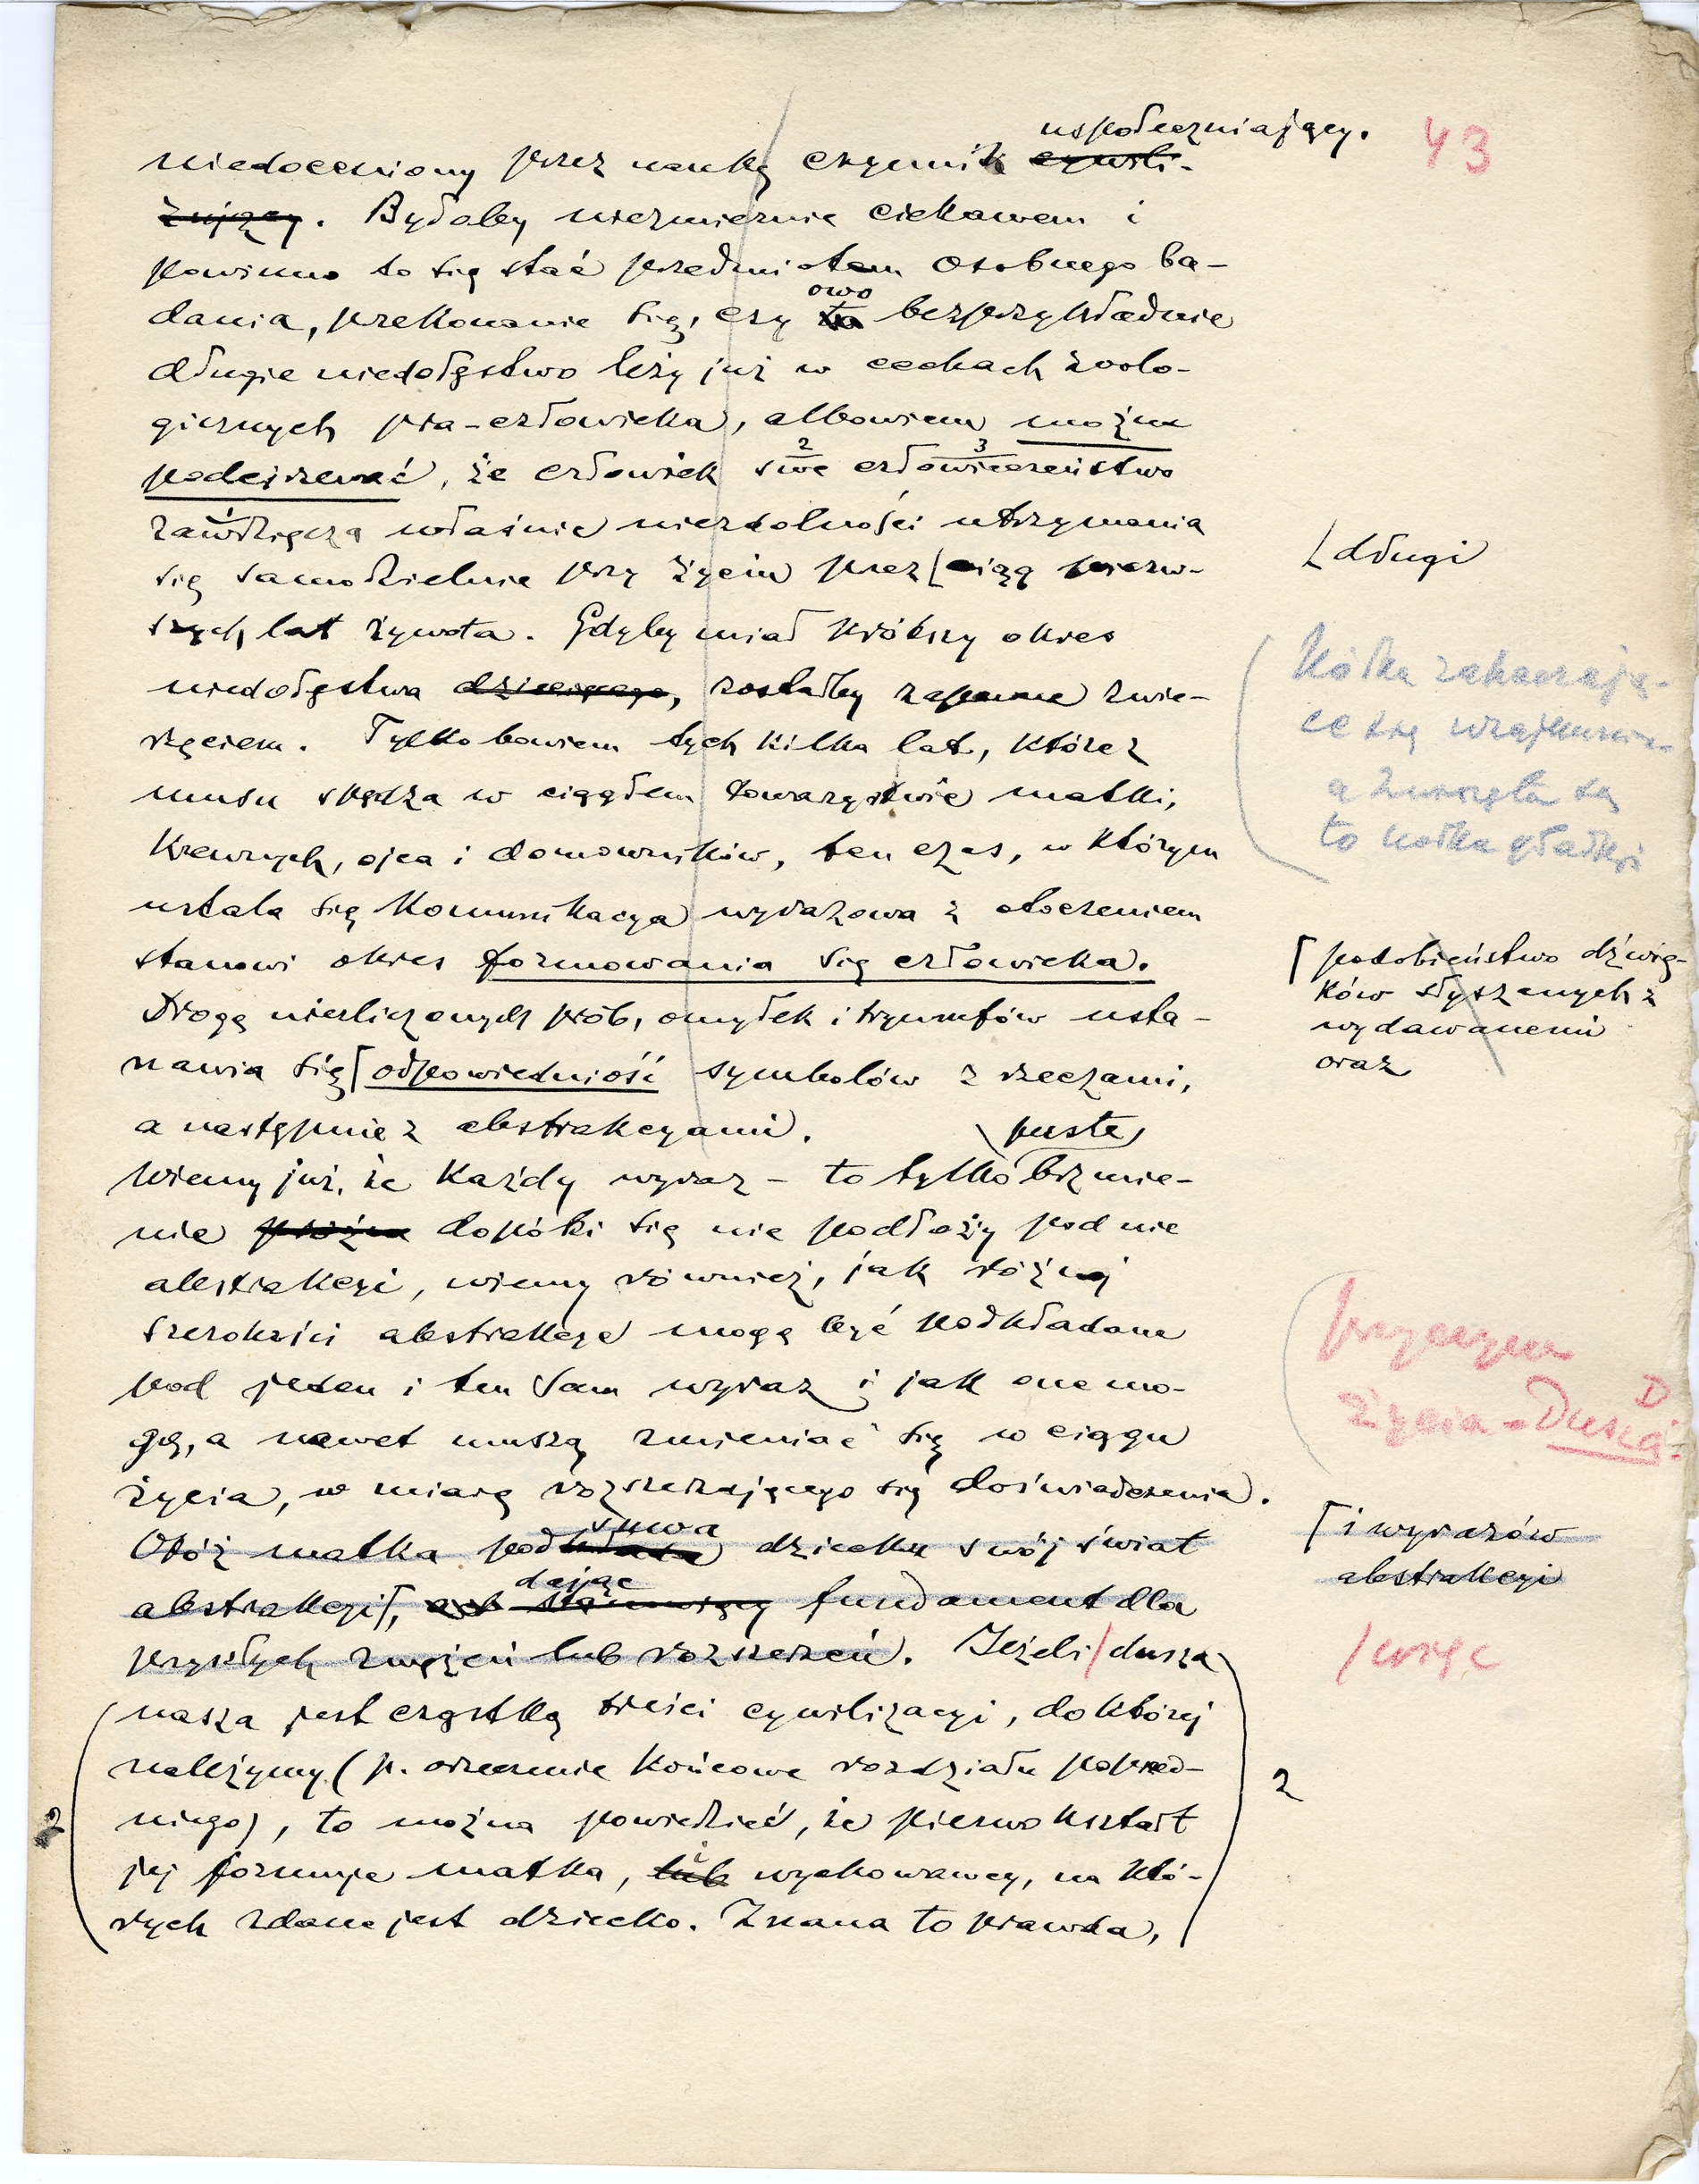 43
uspołeczniający.
niedoceniony przez naukę czynnik cywili-
zujący. Byłoby niezmiernie ciekawem i
powinno to się stać przedmiotem osobnego ba-
owo
dania, przekonanie się, czy to bezprzykładnie
długie niedołęstwo leży już w cechach zoolo-
gicznych pra-człowieka, albowiem można
2 3
podejrzewać, że człowiek swe człowieczeństwo
1
zawdzięcza właśnie niezdolności utrzymania
się samodzielnie przy życiu przez [ciąg pierw-
[długi
szych lat żywota. Gdyby miał krótszy okres
niedołęstwa dziecięcego, zostałby zapewne zwie-
rzęciem. Tylko bowiem tych kilka lat, które z
musu spędza w ciągłem towarzystwie matki,
krewnych, ojca i domowników, ten czas, w którym
ustala się komunikacya wyrazowa z otoczeniem
stanowi okres formowania się człowieka.
Drogą niezliczonych prób, omyłek i tryumfów usta-
nawia się [odpowiedniość symbolów z rzeczami,
a następnie z abstrakcyami.
kółka zahaczają-
ce się wzajemnie
a
to kółka gładkie
[podobieństwo dźwię-
ków słyszanych z
wydawanemi
oraz
puste
Wiemy już, że każdy wyraz – to tylko brzmie-
nie próżne dopóki się nie podłoży pod nie
abstrakcyi, wiemy również, jak różnej
szerokości abstrakcye mogą być podkładane
pod jeden i ten sam wyraz i jak one mo-
gą, a nawet muszą zmieniać się w ciągu
życia, w miarę rozszerzającego się doświadczenia.
przyczyna
życia – Dusza
D
suwa
Otóż matka podkłada dziecku swój świat
dając
abstrakcyi[, stanowiący fundament dla
[i wyrazów
abstrakcyi
przyszłych zwężeń lub rozszerzeń. Jeżeli/dusza
/więc
nasza jest cząstką treści cywilizacyi, do której
należymy (p. orzeczenie końcowe rozdziału poprzed-
2
niego), to można powiedzieć, że pierwokształt
jej formuje matka, lub wychowawcy, na któ-
i
rych zdane jest dziecko. Znana to prawda,